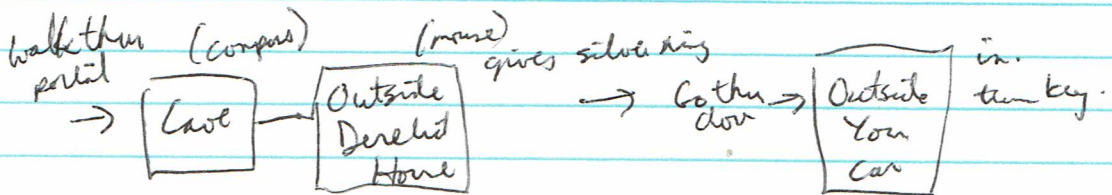 walk thru (compass) (mouse) gives silver ring
portal → Cave — Outside Derelict House → Go thru door → Outside Your Car in. turn key.